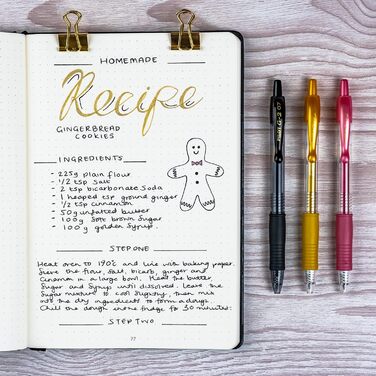 HOMEMADE
Recipe
GINGERBREAD
COOKIES
INGREDIENTS
- 225g plain flour
- 1/2 tsp salt
- 2 tsp bicarbonate soda
- 1 heaped tsp ground ginger
- 1/2 tsp cinnamon
- 50g unsalted butter
- 100g soft brown sugar
- 100g golden syrup
STEP ONE
Heat oven to 190°c and line with baking paper.
Sieve the flour, salt, bicarb, ginger and
cinnamon in a large bowl. Heat the butter
sugar and syrup until dissolved. Leave the
sugar mixture to cool slightly, then mix
into the dry ingredients to form a dough.
Chill the dough in the fridge for 30 minutes.
STEP TWO
77
PILOT G-2 07